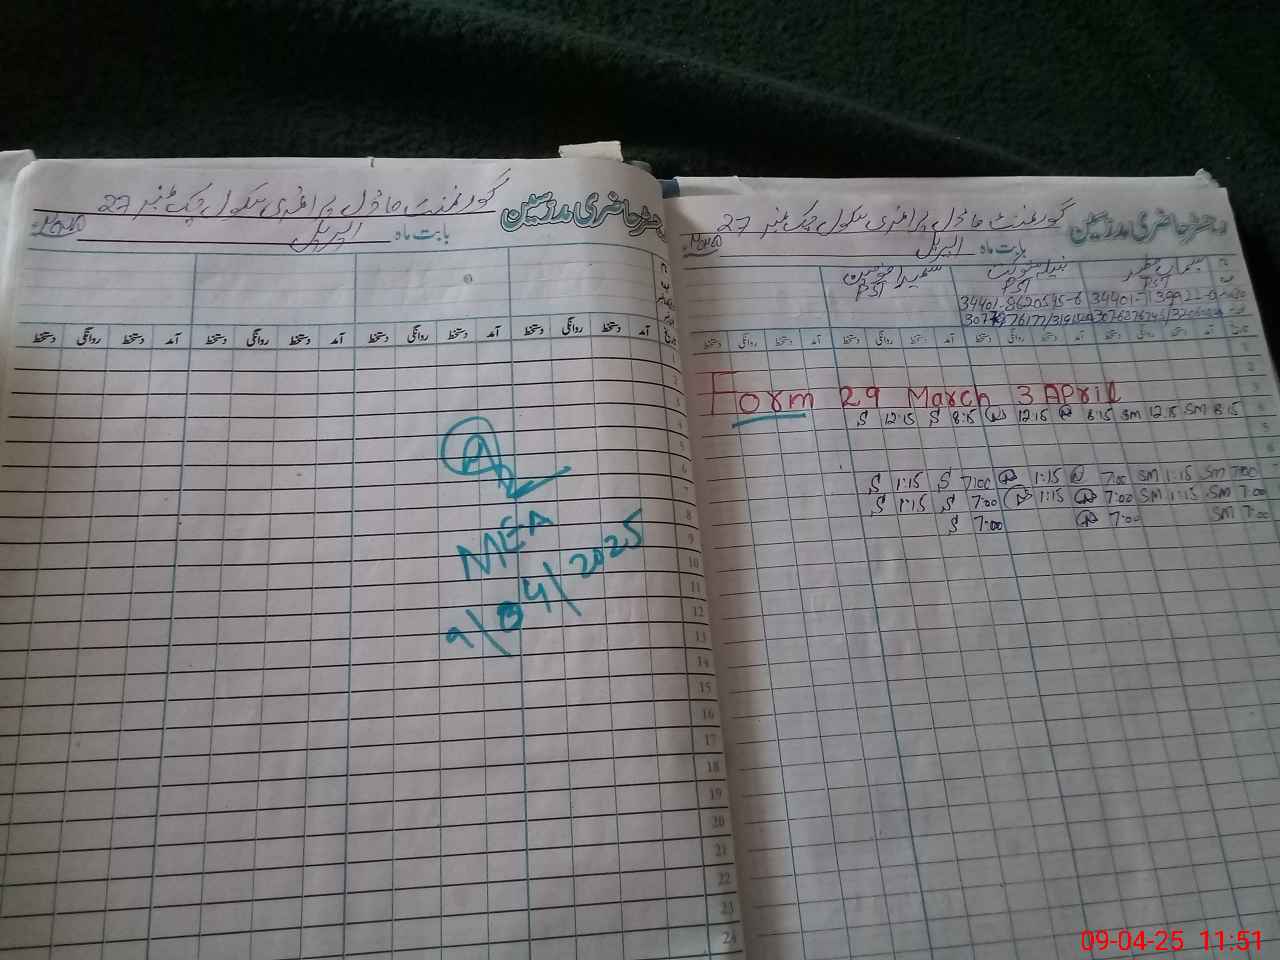 رجسٹر حاضری مدرسین گورنمنٹ ماڈل پرائمری سکول چک نمبر 27
بابت ماہ اپریل
دستخط روانگی دستخط آمد دستخط روانگی دستخط آمد دستخط روانگی دستخط آمد دستخط روانگی دستخط آمد
1
2
3
4
5
6
7
8
9
10
11
12
13
14
15
16
17
18
19
20
21
22
23
24
A
MEA
9/04/2025
رجسٹر حاضری مدرسین گورنمنٹ ماڈل پرائمری سکول چک نمبر 27
بابت ماہ اپریل
PST PST PST
دستخط روانگی دستخط آمد دستخط روانگی دستخط آمد دستخط روانگی دستخط آمد دستخط روانگی دستخط آمد
Form 29 March 3 April
S 12:15 S 8:15 12:15 8:15 SM 12:15 SM 8:15
S 1:15 S 7:00 1:15 7:00 SM 1:15 SM 7:00
S 1:15 S 7:00 1:15 7:00 SM 1:15 SM 7:00
S 7:00 7:00 SM 7:00
09-04-25 11:51